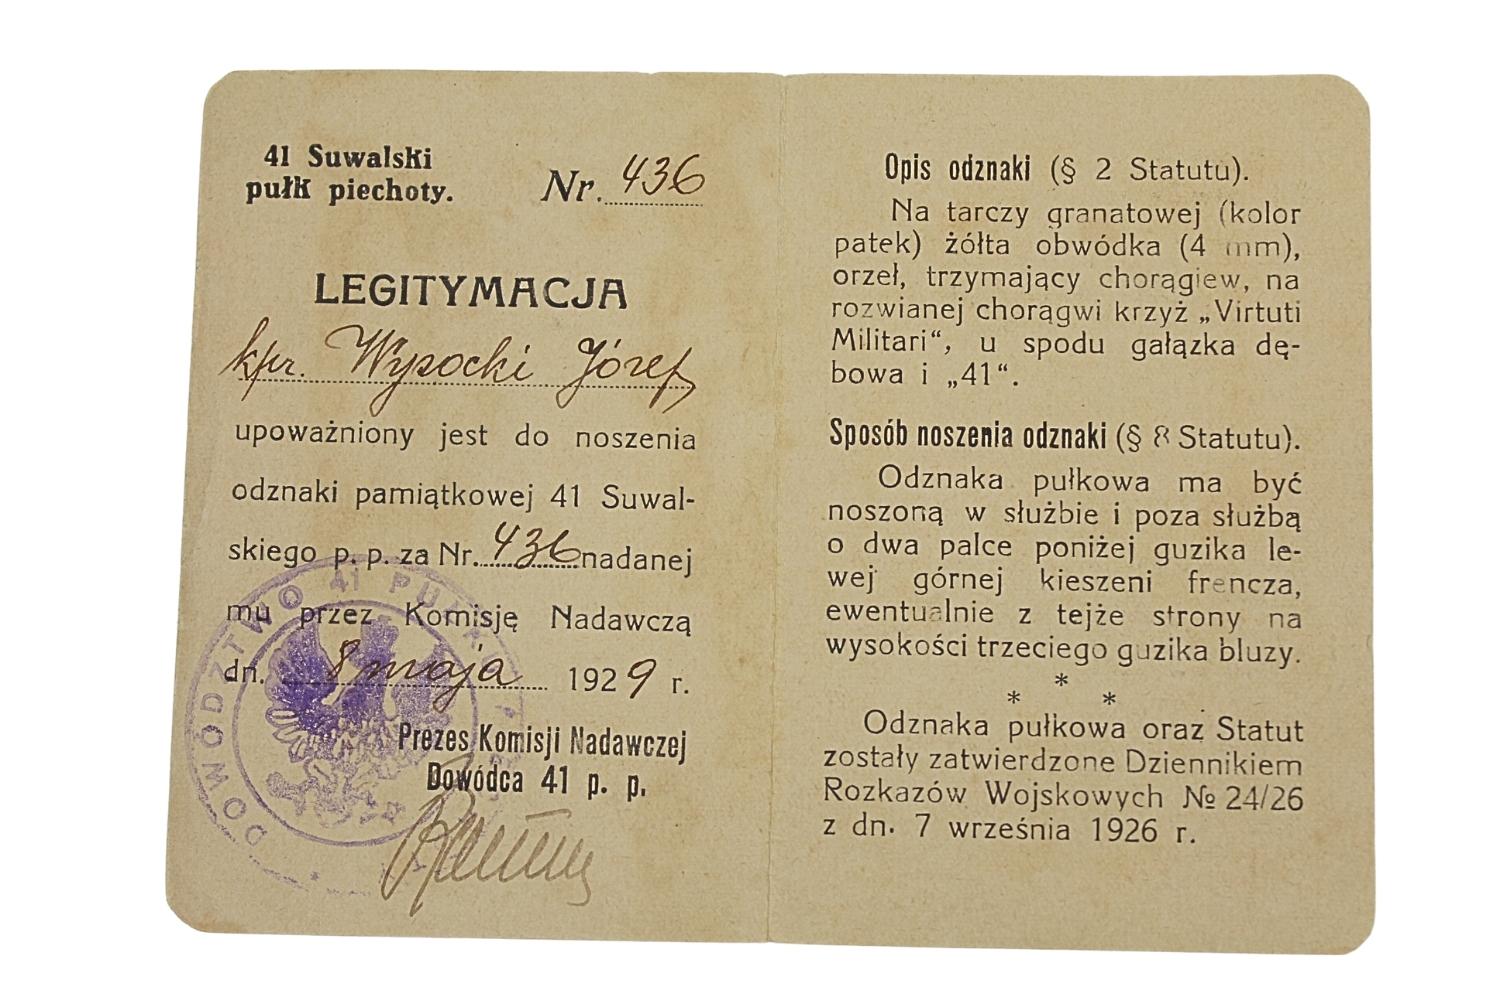 41 Suwalski
pułk piechoty.
Nr. 436
LEGITYMACJA
kpr. Wysocki Józef
upoważniony jest do noszenia
odznaki pamiątkowej 41 Suwal-
skiego p. p. za Nr. 436 nadanej
mu przez Komisję Nadawczą
dn. 8 maja 1929 r.
Prezes Komisji Nadawczej
Dowódca 41 p. p.
DOWÓDZTWO 41 PUŁKU
Opis odznaki (§ 2 Statutu).
Na tarczy granatowej (kolor
patek) żółta obwódka (4 mm),
orzeł, trzymający chorągiew, na
rozwianej chorągwi krzyż „Virtuti
Militari“, u spodu gałązka dę-
bowa i „41“.
Sposób noszenia odznaki (§ 8 Statutu).
Odznaka pułkowa ma być
noszoną w służbie i poza służbą
o dwa palce poniżej guzika le-
wej górnej kieszeni frencza,
ewentualnie z tejże strony na
wysokości trzeciego guzika bluzy.
* * *
Odznaka pułkowa oraz Statut
zostały zatwierdzone Dziennikiem
Rozkazów Wojskowych № 24/26
z dn. 7 września 1926 r.